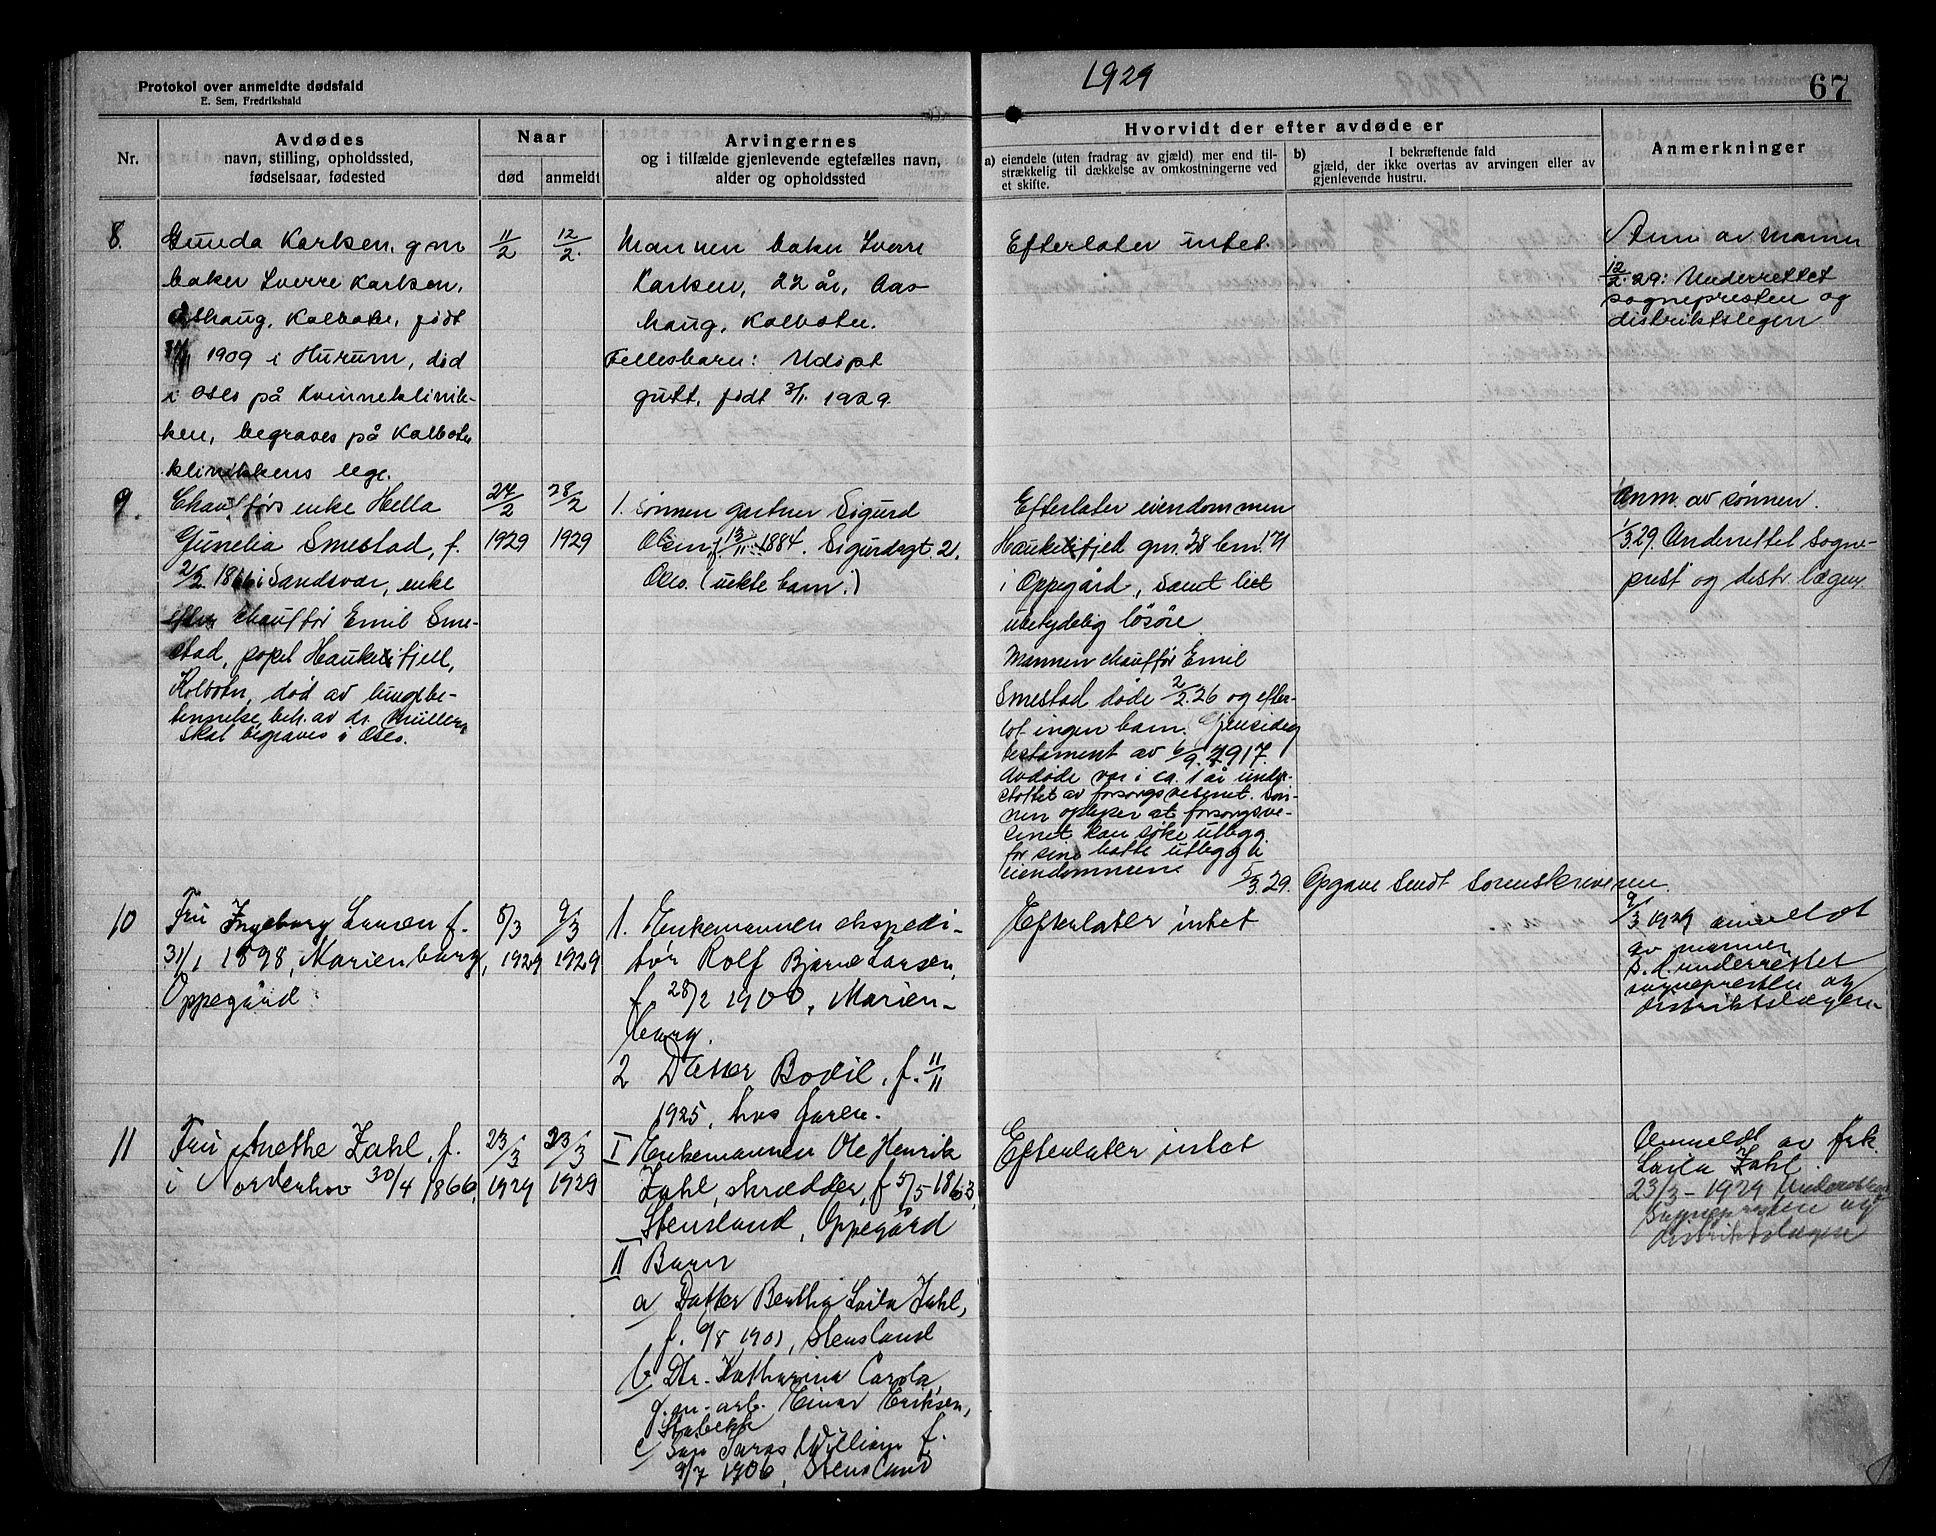 Protokol over anmeldte dødsfald
E. Sem, Fredrikshald
1929
67
Nr.
Avdødes
navn, stilling, opholdssted,
fødselsaar, fødested
Naar
død
anmeldt
Arvingernes
og i tilfælde gjenlevende egtefælles navn,
alder og opholdssted
Hvorvidt der efter avdøde er
a) eiendele (uten fradrag av gjæld) mer end til-
strækkelig til dækkelse av omkostningerne ved
et skifte.
b) I bekræftende fald
gjæld, der ikke overtas av arvingen eller av
gjenlevende hustru.
Anmerkninger
8.
Gunda Karlsen, g m
baker Sverre Karlsen,
Åshaug, Kolbotn, født
1909 i Hurum, død
i Oslo på Kvinneklinik-
ken, begraves på Kolbotn
klinikkens lege.
11/2
12/2.
Mannen baker Sverre
Karlsen, 22 år, Aas-
haug, Kolbotn.
Fellesbarn: Udøpt
gutt, født 3/1. 1929.
Efterlater intet.
Anm. av mannen
12/2. 29: Underrettet
sognepresten og
distriktslegen
9.
Chaufførs enke Hella
Gunelia Smestad, f.
2/2 1866 i Sandsvær, enke
efter chauffør Emil Sme-
stad, Haukelifjell,
Kolbotn, død av lungebe-
tennelse, beh. av dr. Müller,
Skal begraves i Oslo.
27/2
1929
28/2
1929
1. Sønnen gartner Sigurd
Olsen, f. 13/11 1884. Sigurdsgt. 21.
Oslo. (uekte barn.)
Efterlater eiendommen
Haukelifjell gnr. 38 bnr. 171
i Oppegård, samt litt
ubetydelig løsøre.
Mannen chauffør Emil
Smestad døde 2/2. 26 og efter-
lot ingen barn. Gjensidig
testament av 6/9. 1917.
Avdøde var i ca. 1 år under-
støttet av forsorgsvesenet. Søn-
nen opgir at forsorgsve-
senet kan søke utlegg
for sine havte utlegg i
eiendommen.
5/3. 29. Opgave sendt sorenskriveren.
Anm. av sønnen.
1/3. 29. Underrettet sogne-
prest og distr. lægen.
10
Fru Ingeborg Larsen f.
31/1 1898, Marienborg,
Oppegård
8/3
1929
9/3
1929
1. Enkemannen ekspedi-
tør Rolf Bjarne Larsen,
f. 28/2 1900, Marien-
borg.
2 Datter Bodil, f. 11/11
1925, hos faren.
Efterlater intet
9/3 1929 anmeldt
av mannen
S. d. underrettet
sognepresten og
distriktslægen.
11
Fru Anethe Zahl, f.
i Norderhov 30/4 1866,
23/3
1929
23/3
1929
I Enkemannen Ole Henrik
Zahl, skrædder, f 5/5 1863,
Stensland, Oppegård
II Barn
a Datter Berthia Laila Zahl,
f. 9/8 1901, Stensland
b Dtr. Katharina Carola
g. m. arb. Einar Eriksen,
Stabekk
c Søn William f.
9/7 1906, Stensland
Efterlater intet
Anmeldt av frk.
Laila Zahl.
23/3 - 1929 Underrettet
Sognepresten og
distriktslægen